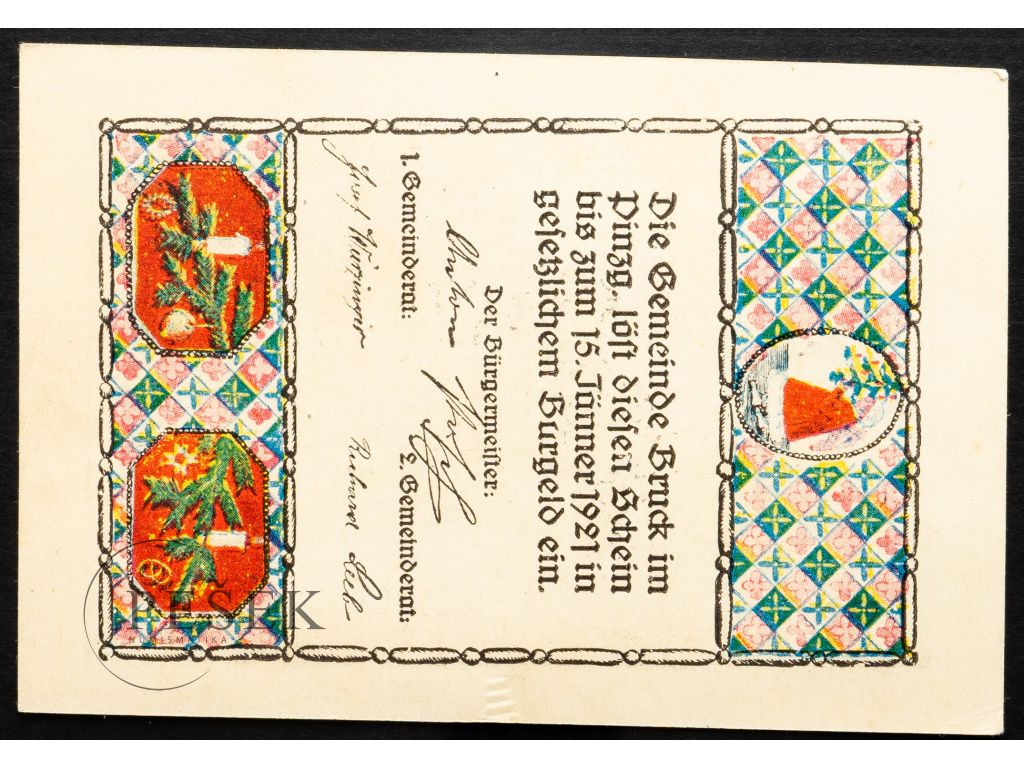 Die Gemeinde Bruck im
Pinzg. löst diesen Schein
bis zum 15. Jänner 1921 in
gesetzlichem Burgeld ein.
Der Bürgermeister:
1. Gemeinderat: 2. Gemeinderat:
Josef
PEŠEK
NUMISMATIKA